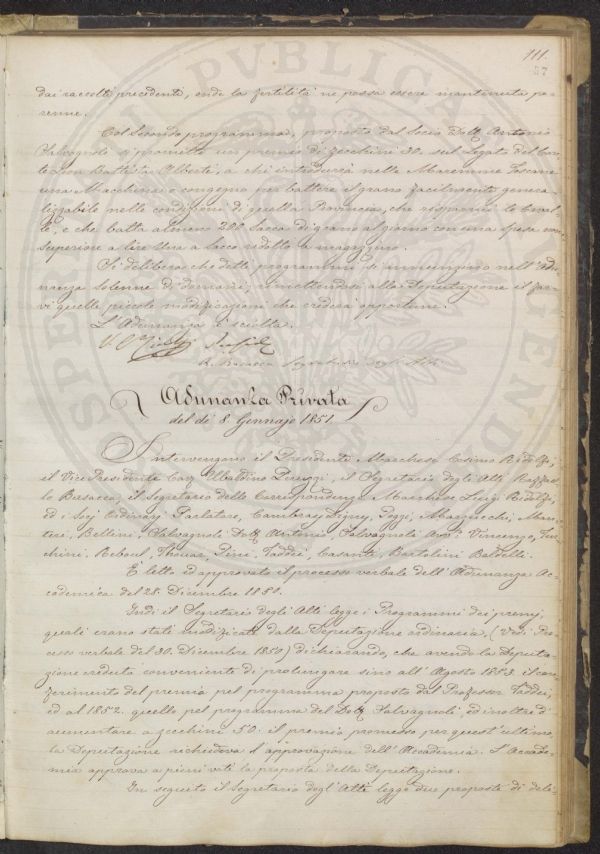 111.
37
dai raccolti precedenti, onde la fertilità ne possa essere mantenuta pe-
renne.
Col secondo programma, proposto dal Socio Dott. Antonio
Salvagnoli si promette un premio di zecchini 30. sul legato del
Leon Battista Alberti, a chi introdurrà nelle Maremme Toscane
una Macchina o congegno per battere il grano facilmente genera-
lizzabile nelle condizioni di quella Provincia, che risparmi le
e che batta almeno 200 sacca di grano al giorno con una spesa non
superiore a lire una a sacco ridotto a magazzino.
Si delibera che detti programmi si annunzino nell'Adu-
nanza solenne di domani, rimettendosi alla Deputazione il far-
vi quelle piccole modificazioni che crederà opportune.
L'Adunanza è sciolta.
R. Busacca Segretario degli Atti
Adunanza Privata
del dì 8 Gennajo 1851
Intervengono il Presidente Marchese Cosimo Ridolfi,
il Vice Presidente Cav. Ubaldino Peruzzi, il Segretario degli Atti Raffael-
lo Busacca, il Segretario delle Corrispondenze Marchese Luigi Ridolfi,
ed i Socj Ordinarj Parlatore, Cambray Digny, Poggi, Marzucchi,
Bettini, Salvagnoli Dott. Antonio, Salvagnoli Avv. Vincenzo,
Reboul, Thouar, Pini, Taddei, Casanti, Bartolini Baldelli.
È letto ed approvato il processo verbale dell'Adunanza Ac-
cademica del 28. Dicembre 1850.
Indi il Segretario degli Atti legge i Programmi dei premj,
quali erano stati modificati dalla Deputazione ordinaria, (Vedi Pro-
cesso verbale del 30. Dicembre 1850) dichiarando, che avendo la Deputa-
zione creduto conveniente di prolungare sino all'Agosto 1853. il con-
ferimento del premio pel programma proposto dal Professor Taddei,
ed al 1852. quello pel programma del Dott. Salvagnoli, ed inoltre d'
aumentare a zecchini 50. il premio promesso per quest'ultimo,
la Deputazione richiedeva l'approvazione dell'Accademia. L'Accade-
mia approva a pieni voti la proposta della Deputazione.
In seguito il Segretario degl'Atti legge due proposte di deli-